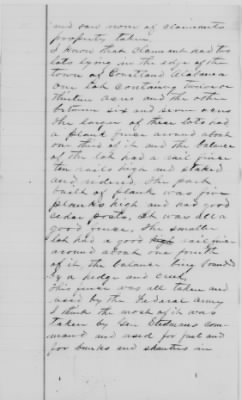 and saw none of claimants
property taken.
I know that Claimant had two
lots lying in the edge of the
town of Courtland Alabama
one lot containing twelve or
thirteen acres and the other
between six and seven acres
The larger of these lots had
a plank fence around about
one third of it and the balance
of the lot had a rail fence
ten rails high and staked
and ridered. The part
built of plank was five
planks high and had good
cedar posts. It was all a
good fence. The smaller
lot had a good rail fence
around about one fourth
of it the balance being bounded
by a hedge and creek
This fence was all taken and
used by the Federal army
I think the most of it was
taken by Gen Stedmans com-
mand and used for fuel and
for bunks and shanties in